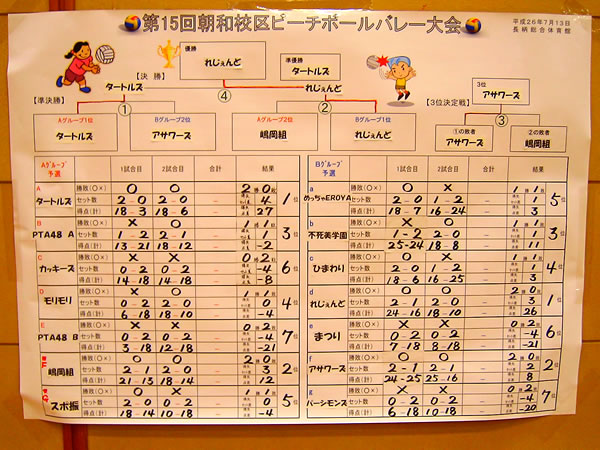 第15回朝和校区ビーチボールバレー大会
平成26年7月13日
長柄総合体育館
優勝
れじぇんど
準優勝
タートルズ
【決勝】
タートルズ
れじぇんど
④
【準決勝】
①
②
Aグループ1位
タートルズ
Bグループ2位
アサワーズ
Aグループ2位
嶋岡組
Bグループ1位
れじぇんど
【3位決定戦】
3位
アサワーズ
③
①の敗者
アサワーズ
②の敗者
嶋岡組
Aグループ 予選 1試合目 2試合目 合計 結果
A タートルズ
勝敗(○×) ○ ○ 2勝0敗 1位
セット数 2-0 2-0 - 4
得点(計) 18-3 18-6 - 27
B PTA48 A
勝敗(○×) × ○ 1勝1敗 3位
セット数 1-2 2-1 - 1
得点(計) 13-21 18-12 - -2
C カッキーズ
勝敗(○×) × × 0勝2敗 6位
セット数 0-2 0-2 - -4
得点(計) 14-18 14-18 - -8
D モリモリ
勝敗(○×) × ○ 1勝1敗 4位
セット数 0-2 2-0 - 0
得点(計) 6-18 18-10 - -4
E PTA48 B
勝敗(○×) × × 0勝2敗 7位
セット数 0-2 0-2 - -4
得点(計) 3-18 12-18 - -21
嶋岡組
勝敗(○×) ○ ○ 2勝0敗 2位
セット数 2-1 2-0 - 3
得点(計) 21-13 18-14 - 12
スポ振
勝敗(○×) ○ × 1勝1敗 5位
セット数 2-0 0-2 - 0
得点(計) 18-14 10-18 - -4
Bグループ 予選 1試合目 2試合目 合計 結果
a めっちゃEROYA
勝敗(○×) ○ × 1勝1敗 5位
セット数 2-0 1-2 - 1
得点(計) 18-7 16-24 - 3
b 不死美学園
勝敗(○×) × ○ 1勝1敗 3位
セット数 1-2 2-0 - 1
得点(計) 25-24 18-8 - 11
c ひまわり
勝敗(○×) ○ × 1勝1敗 4位
セット数 2-0 1-2 - 1
得点(計) 18-6 16-25 - 3
d れじぇんど
勝敗(○×) ○ ○ 2勝0敗 1位
セット数 2-1 2-0 - 3
得点(計) 24-16 18-10 -
e まつり
勝敗(○×) × × 0勝2敗 6位
セット数 0-2 0-2 - -4
得点(計) 7-18 8-18 - -21
f アサワーズ
勝敗(○×) ○ ○ 2勝0敗 2位
セット数 2-1 2-1 - 2
得点(計) 24-25 25-16 - 8
g パーシモンズ
勝敗(○×) × × 0勝2敗 7位
セット数 0-2 0-2 - -4
得点(計) 6-18 10-18 - -20